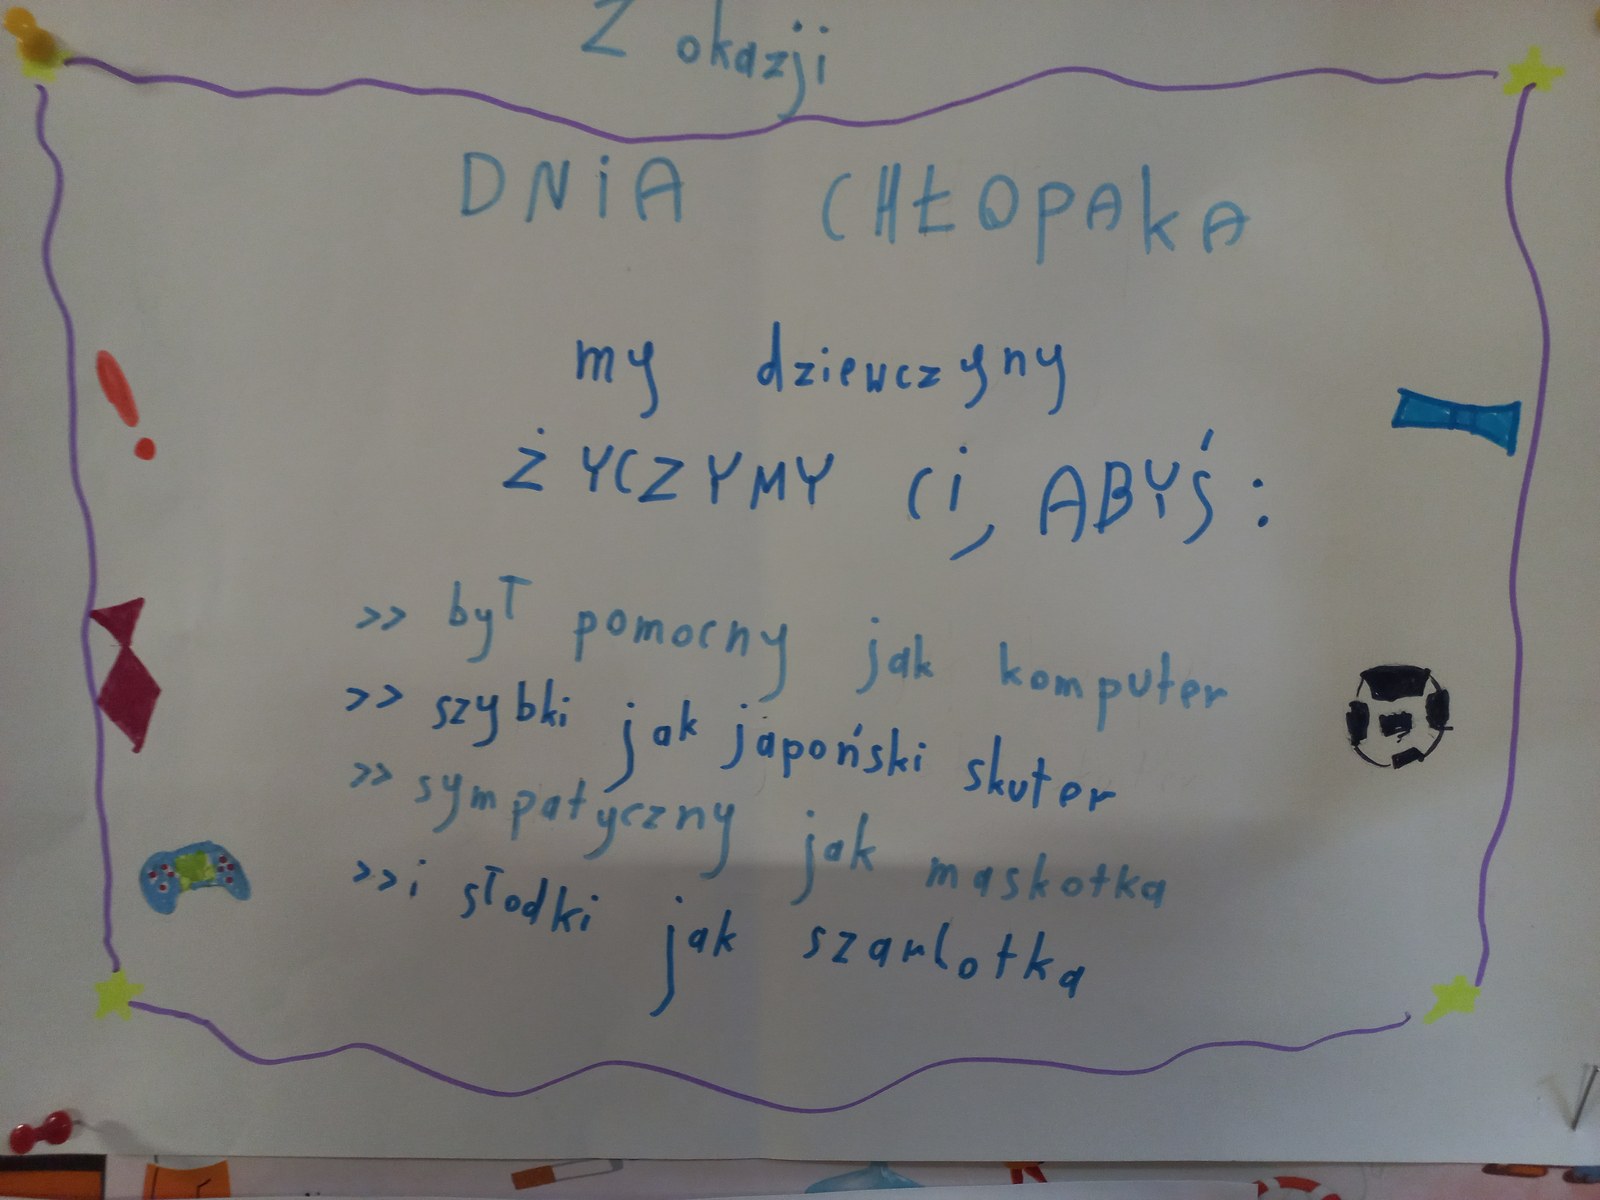 Z okazji
DNiA CHŁOPAkA
my dziewczyny
ŻYCZYMY Ci, ABYŚ:
>> był pomocny jak komputer
>> szybki jak japoński skuter
>> sympatyczny jak maskotka
>> i słodki jak szarlotka